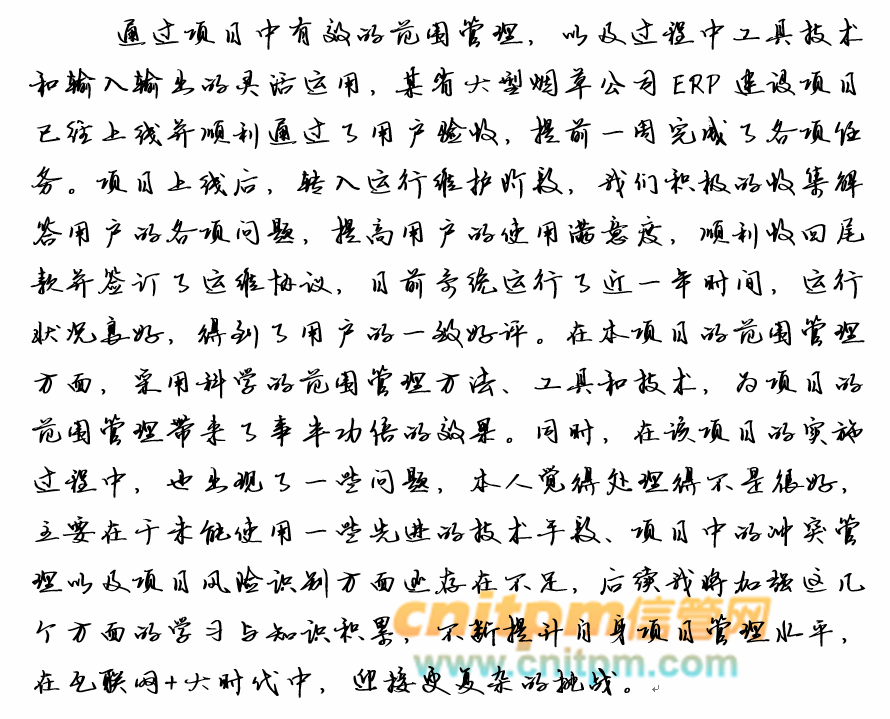 通过项目中有效的范围管理，以及过程中工具技术
和输入输出的灵活运用，某省大型烟草公司ERP建设项目
已经上线并顺利通过了用户验收，提前一周完成了各项任
务。项目上线后，转入运行维护阶段，我们积极的收集解
答用户的各项问题，提高用户的使用满意度，顺利收回尾
款并签订了运维协议，目前系统运行了近一年时间，运行
状况良好，得到了用户的一致好评。在本项目的范围管理
方面，采用科学的范围管理方法、工具和技术，为项目的
范围管理带来了事半功倍的效果。同时，在该项目的实施
过程中，也出现了一些问题，本人觉得处理得不是很好，
主要在于未能使用一些先进的技术手段、项目中的冲突管
理以及项目风险识别方面还存在不足，后续我将加强这几
个方面的学习与知识积累，不断提升自身项目管理水平，
在互联网+大时代中，迎接更复杂的挑战。
cnitpm信管网
www.cnitpm.com